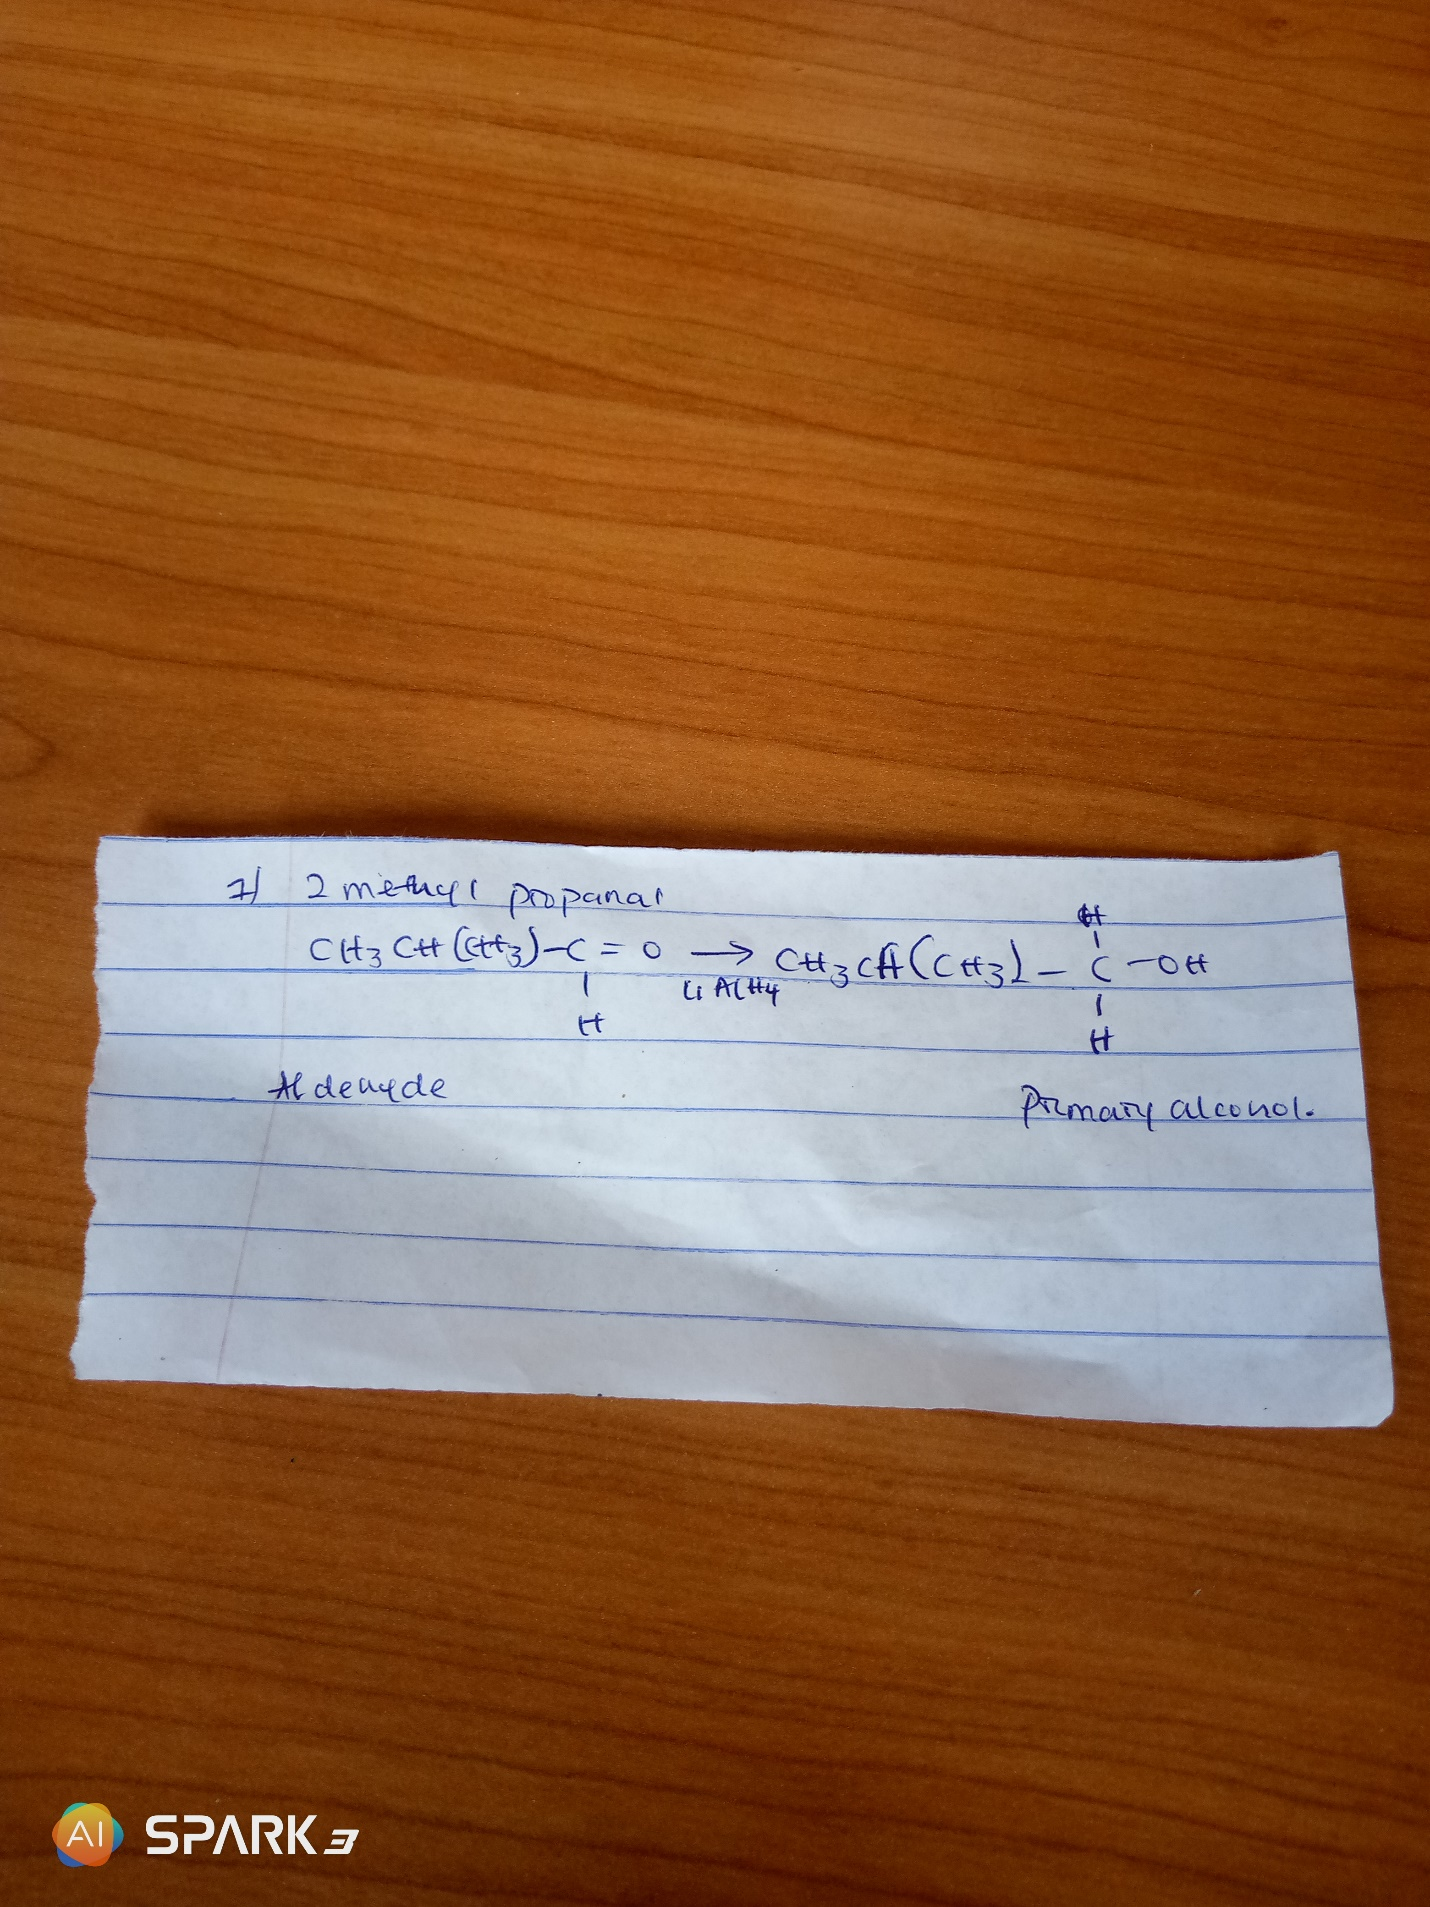 7) 2 methyl propanal
CH3CH(CH3)-C=O → CH3CH(CH3)-C-OH
LiAlH4
H
H
H
Aldehyde
Primary alcohol.
AI SPARK 3